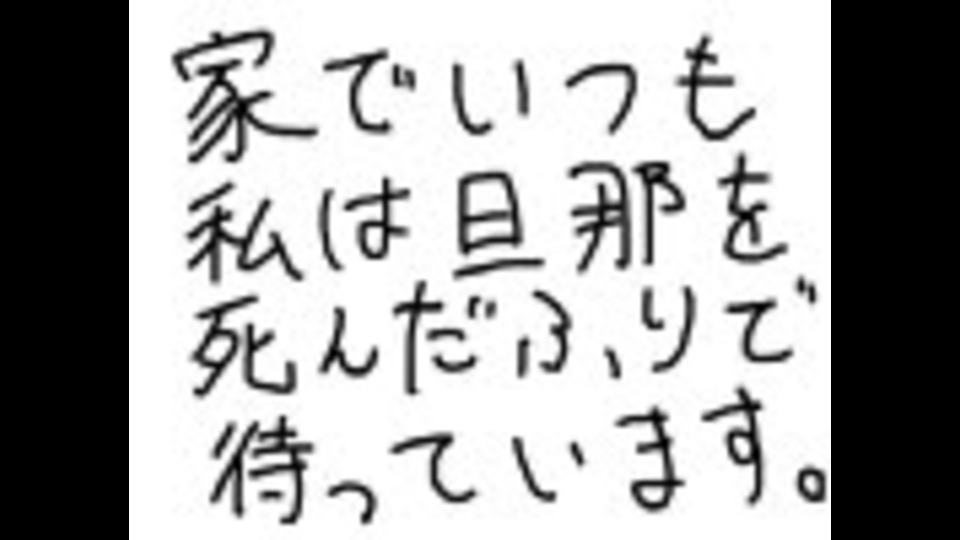 家でいつも
私は旦那を
死んだふりで
待っています。